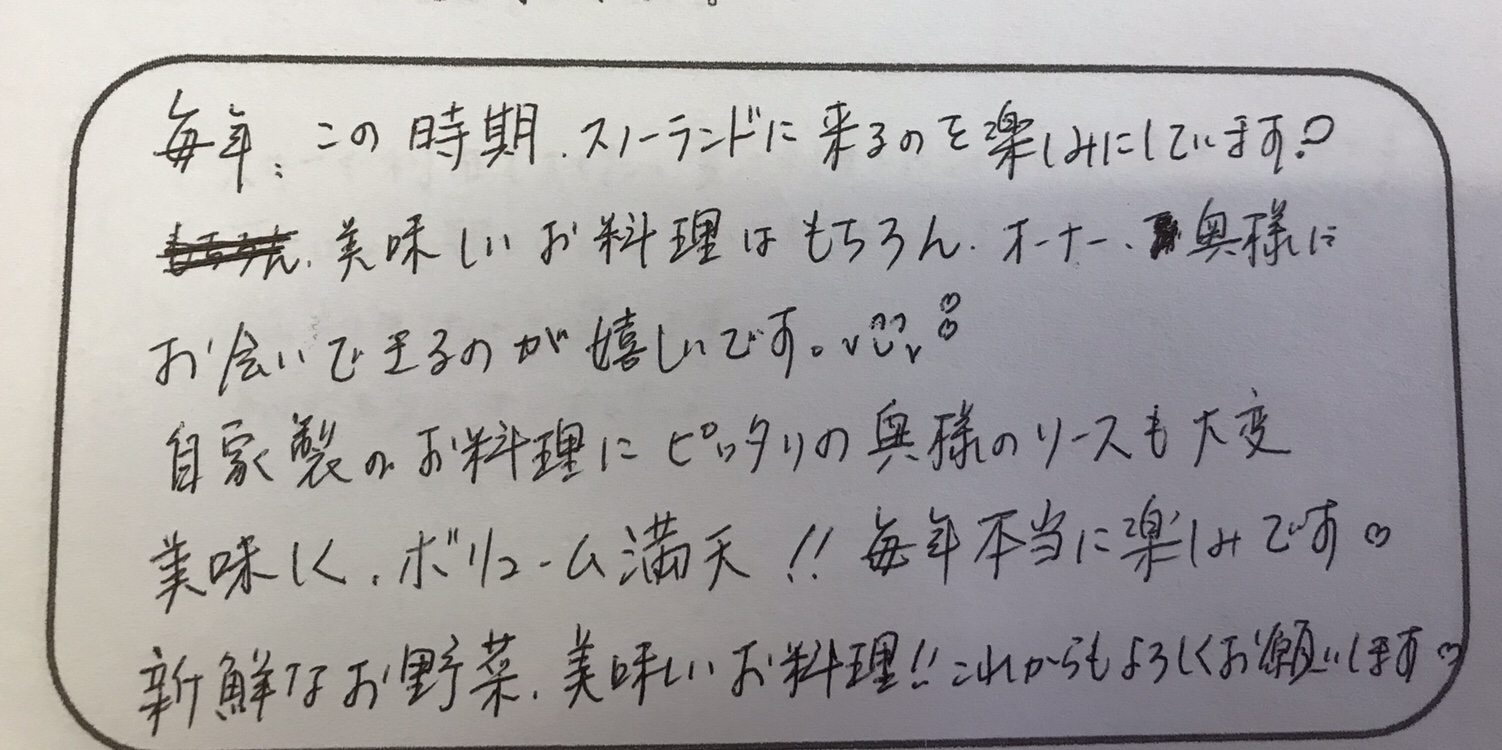 毎年、この時期、スノーランドに来るのを楽しみにしています♡
もちろん、美味しいお料理はもちろん、オーナー、奥様に
お会いできるのが嬉しいです。
自家製のお料理にピッタリの奥様のソースも大変
美味しく、ボリューム満天!!毎年本当に楽しみです♡
新鮮なお野菜、美味しいお料理!!これからもよろしくお願いします♡